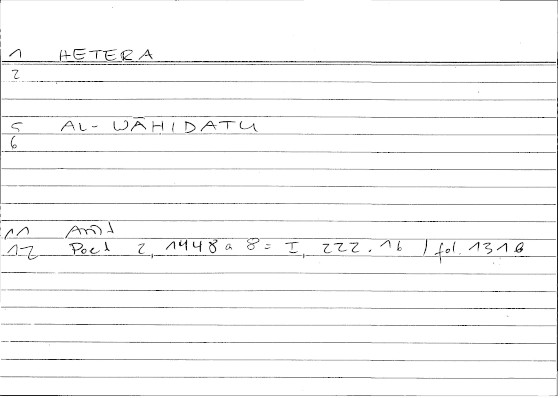 1 HETERA
2
5 AL-WĀHIDATU
6
11 Arist
12 Poet 2, 1448 a 8 = I, 222.16 / fol. 131 b